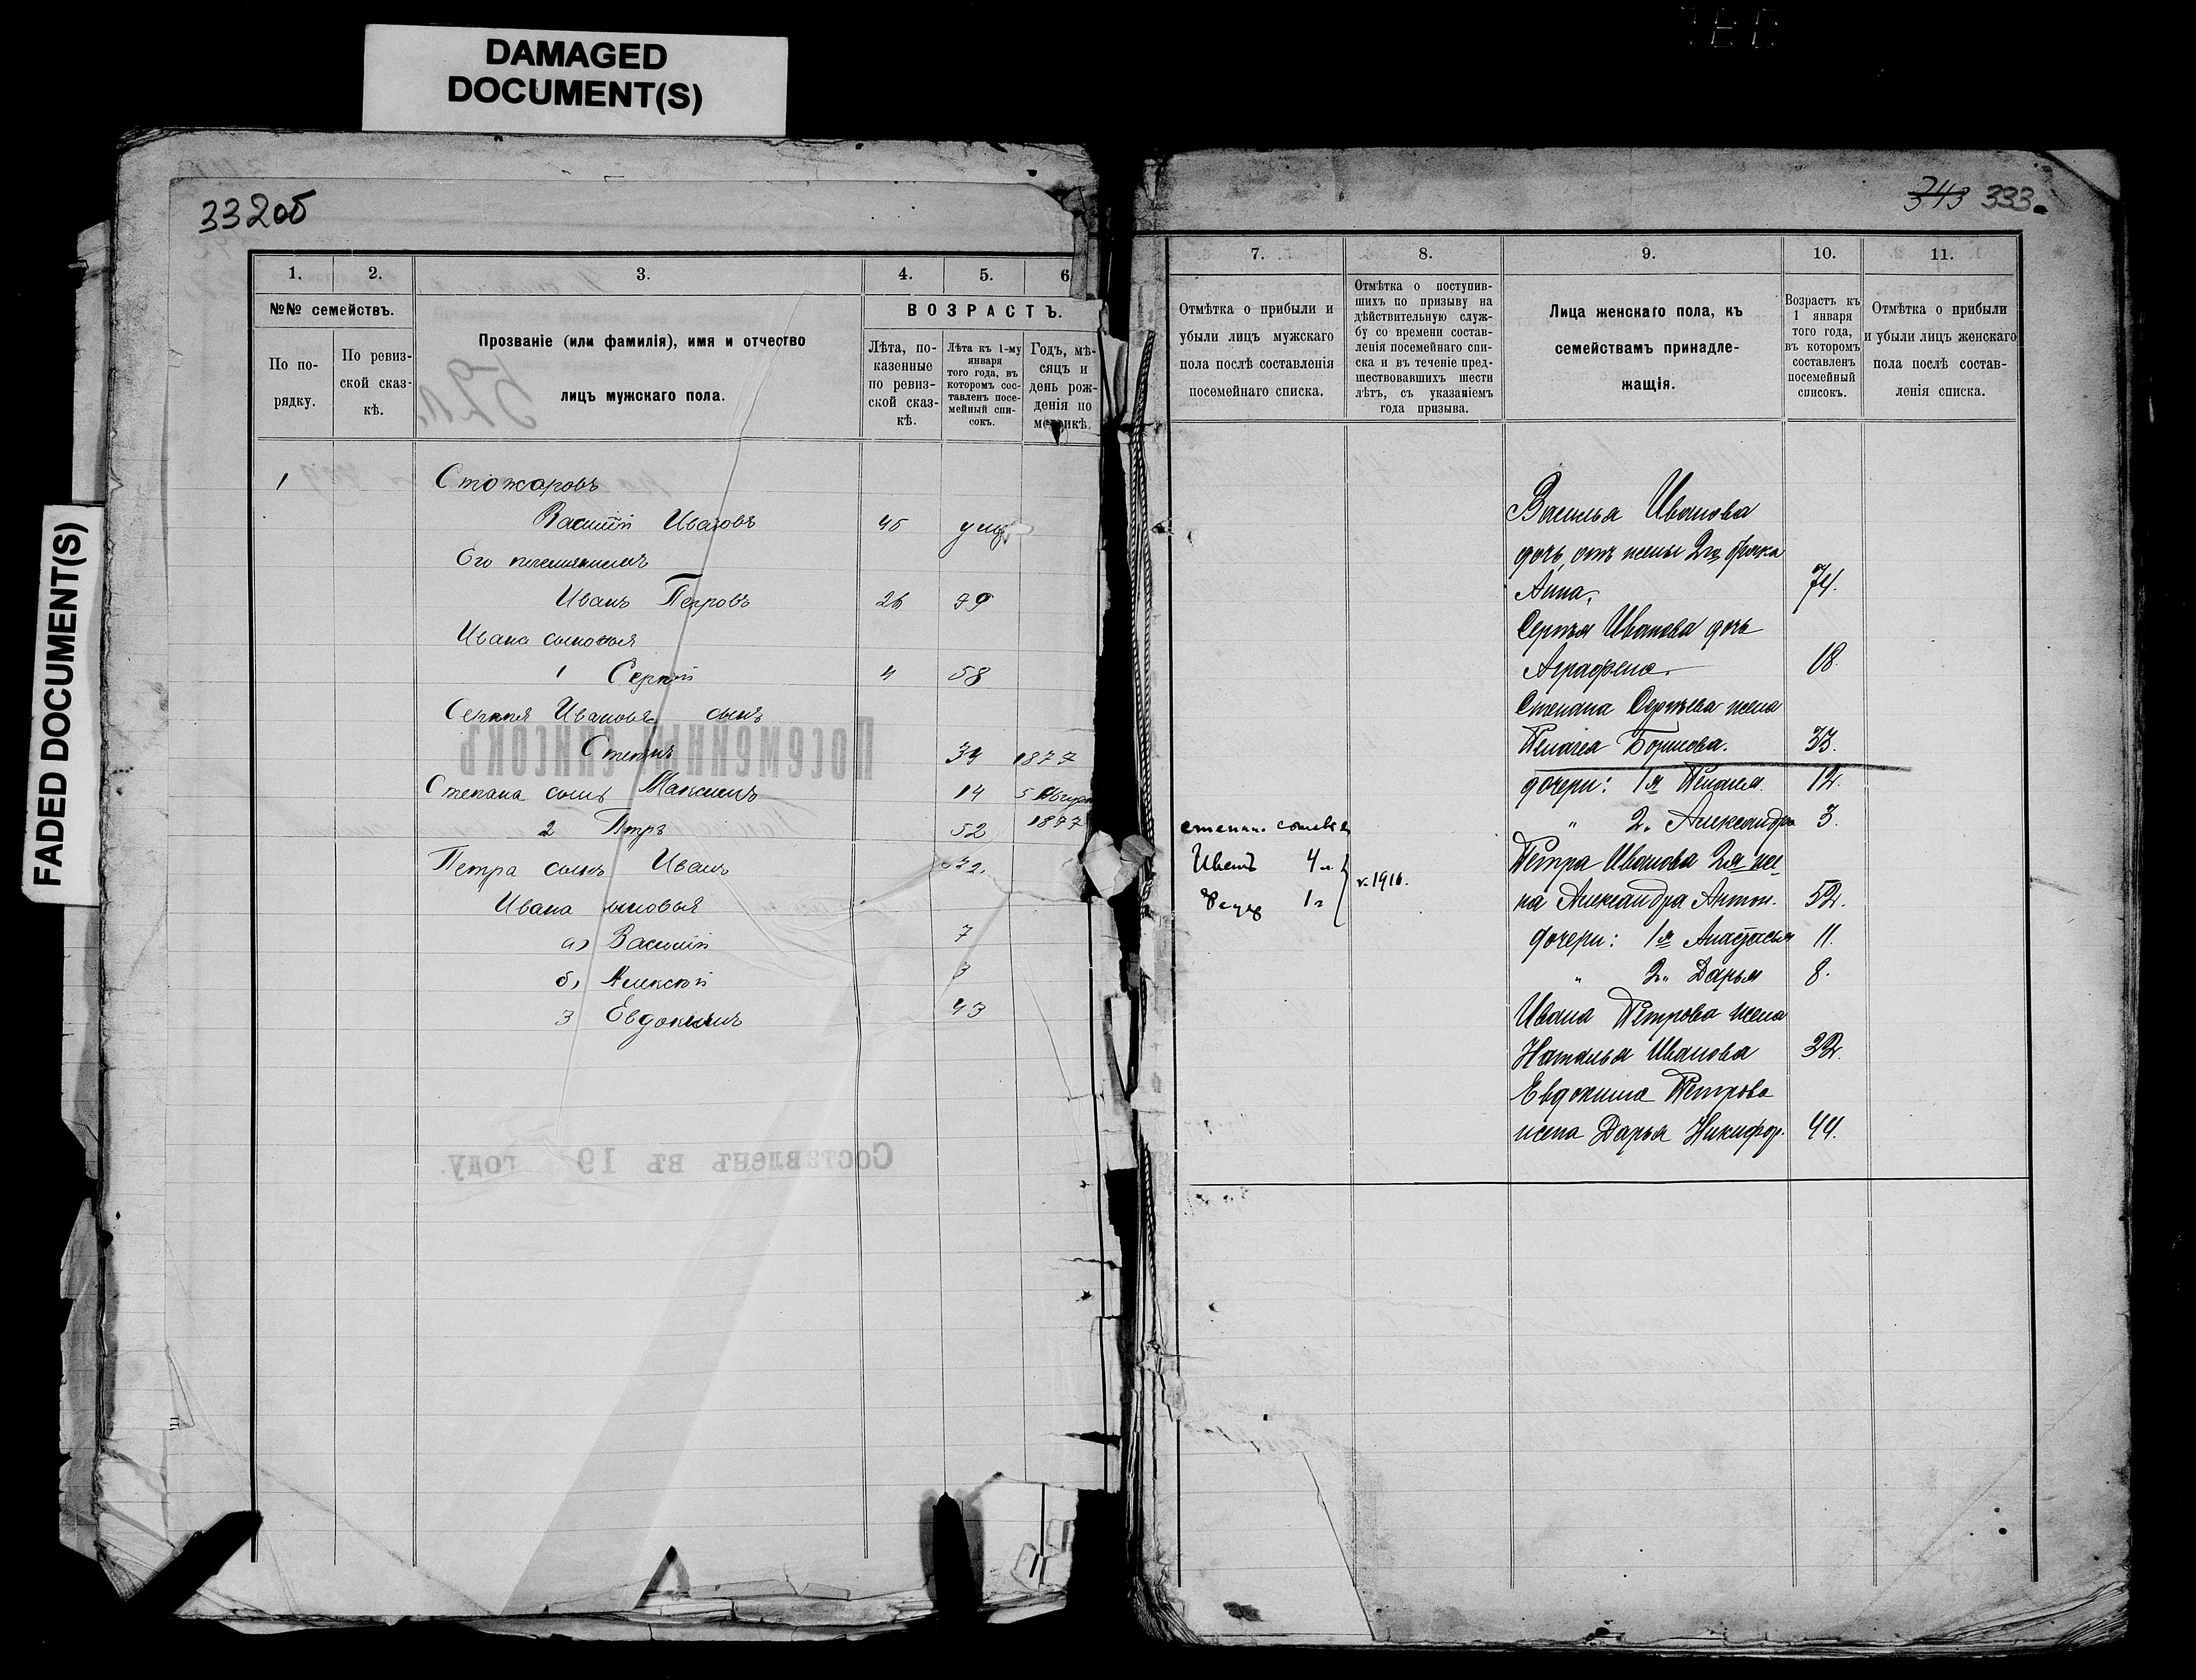 DAMAGED
DOCUMENT(S)
FADED DOCUMENT(S)
332об
1. 2. 3. 4. 5. 6
№№ семействъ.
По по-
рядку.
По ревиз-
ской сказ-
кѣ.
Прозваніе (или фамилія), имя и отчество
лицъ мужскаго пола.
ВОЗРАСТЪ.
Лѣта, по-
казенные
по ревиз-
ской сказ-
кѣ.
Лѣта къ 1-му
января
того года, въ
которомъ сос-
тавленъ посе-
мейный спи-
сокъ.
Годъ, мѣ-
сяцъ и
день рож-
денія по
метрикѣ.
1 Стожаровъ
Василій Ивановъ 45
Его племянникъ
Иванъ Петровъ 26 79
Ивана сыновья
1 Сергѣй 4 58
Сергѣя Иванова сынъ
Степанъ 39 1877
Степана сынъ Максимъ 14 5
1897
2 Петръ 52
Петра сынъ Иванъ 32.
Ивана сыновья
а) Василій 7
б) Алексѣй 3
3 Евдокимъ 43
Посемейный списокъ
Составленъ въ 19 году.
343 333.
7. 8. 9. 10. 11.
Отмѣтка о прибыли и
убыли лицъ мужскаго
пола послѣ составленія
посемейнаго списка.
Отмѣтка о поступив-
шихъ по призыву на
дѣйствительную служ-
бу со времени состав-
ленія посемейнаго спи-
ска и въ теченіе пред-
шествовавшихъ шести
лѣтъ, съ указаніемъ
года призыва.
Лица женскаго пола, къ
семействамъ принадле-
жащія.
Возрастъ къ
1 января
того года,
въ которомъ
составленъ
посемейный
списокъ.
Отмѣтка о прибыли
и убыли лицъ женскаго
пола послѣ состав-
ленія списка.
Василья Иванова
дочь, отъ жены 2го брака
Анна. 74.
Сергѣя Иванова дочь
Аграфена. 18.
Степана Сергѣева жена
Пелагея Борисова. 33.
дочери: 1я Пелагея. 12.
" 2. Александра 3.
Петра Иванова 2я же-
на Александра Антон. 52.
дочери: 1я Анастасья 11.
" 2.. Дарья 8.
Ивана Петрова жена
Наталья Иванова 32.
Евдокима Петрова
жена Дарья Никифор. 44.
степан. сыновья
Иванъ 4 л.
1 г
1916.